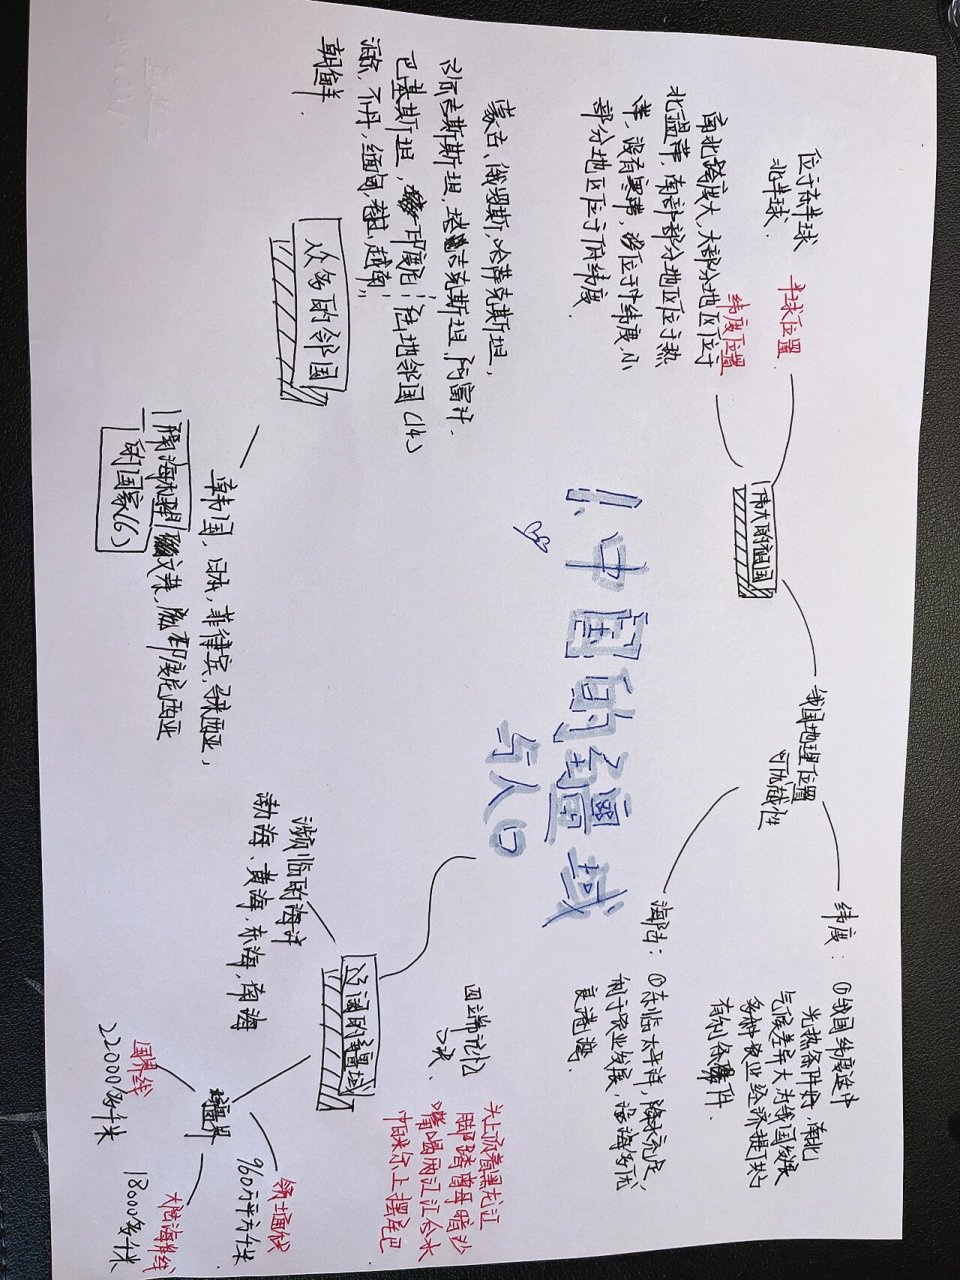 1.中国的疆域
与人口
伟大的祖国
半球位置
位于东半球
北半球.
纬度位置
南北跨度大,大部分地区位于
北温带,南部部分地区位于热
带,没有寒带,多位于中纬度,小
部分地区位于低纬度.
我国地理位置
的优越性
纬度:①我国纬度适中
光热条件好,南北
气候差异大为我国发展
多种农业经济提供
有利条件.
海陆:①东临太平洋,降水充足,
利于农业发展,沿海多优
良港湾.
辽阔的疆域
四端记忆
口诀.
头上顶着黑龙江
脚踏曾母暗沙
嘴喝两江汇合水
帕米尔上摆尾巴
濒临的海洋
渤海、黄海、东海、南海
疆界
领土面积
960万平方千米
大陆海岸线
18000多千米
国界线
22000多千米
众多的邻国
蒙古、俄罗斯,哈萨克斯坦,
吉尔吉斯斯坦,塔吉克斯坦,阿富汗.
巴基斯坦,印度尼;陆地邻国(14)
泊尔,不丹,缅甸,老挝,越南,
朝鲜.
隔海相望
的国家(6)
韩国,日本,菲律宾,马来西亚,
文莱,印度尼西亚